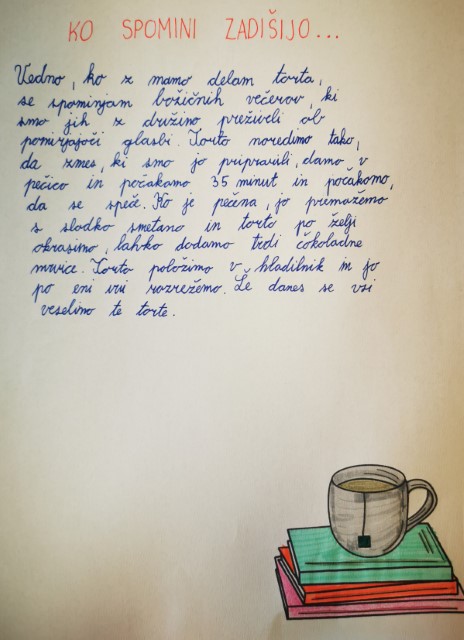 KO SPOMINI ZADIŠIJO...
Vedno, ko z mamo delam torto,
se spominjam božičnih večerov, ki
smo jih z družino preživeli ob
pomirjajoči glasbi. Torto naredimo tako,
da zmes, ki smo jo pripravili, damo v
pečico in počakamo 35 minut in počakamo,
da se speče. Ko je pečena, jo premažemo
s sladko smetano in torto po želji
okrasimo, lahko dodamo tudi čokoladne
mrvice. Torto položimo v hladilnik in jo
po eni uri razrežemo. Še danes se vsi
veselimo te torte.